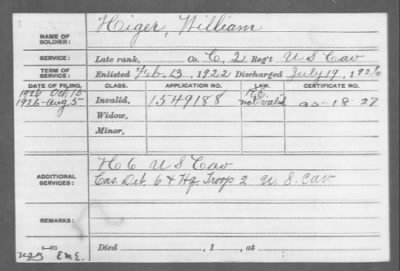 NAME OF SOLDIER: Higer, William
SERVICE: Late rank, Co. C, 2 Reg't U S Cav
TERM OF SERVICE: Enlisted Feb. 13, 1922 Discharged July 19, 1926
DATE OF FILING. CLASS. APPLICATION NO. LAW. CERTIFICATE NO.
1926 Oct
1926-Aug 5 Invalid, 1549188 not valid
Widow,
Minor,
ADDITIONAL SERVICES: U S Cav
Cas. Det. 6 & Hq. Troop 2 U.S. Cav.
REMARKS:
Died , 1 , at